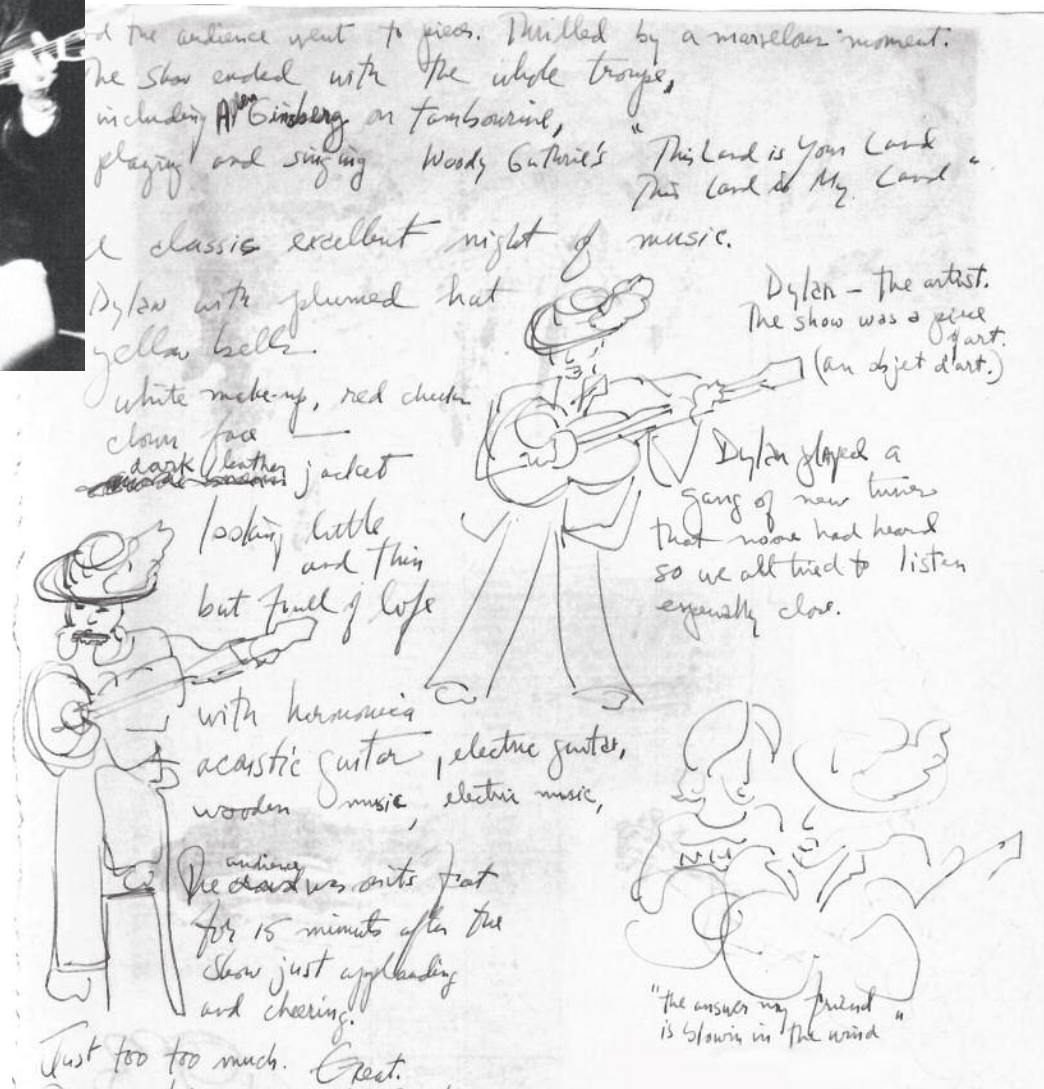 d the audience went to pieces. Thrilled by a marvelous moment.
he show ended with the whole troupe,
including Allen Ginsberg on tambourine,
playing and singing Woody Guthrie's "This Land is Your Land
This Land is My Land"
A classic excellent night of music.
Dylan with plumed hat
yellow bells
white make-up, red cheeks
clown face —
dark leather jacket
looking little
and thin
but full of life
with harmonica
acoustic guitar, electric guitar,
wooden music, electric music,
The audience was on its feet
for 15 minutes after the
show just applauding
and cheering.
Just too too much. Great.
Dylan – the artist.
The show was a piece
of art.
(an objet d'art.)
Dylan played a
gang of new tunes
that noone had heard
so we all tried to listen
especially close.
"the answer my friend
is blowin in the wind"